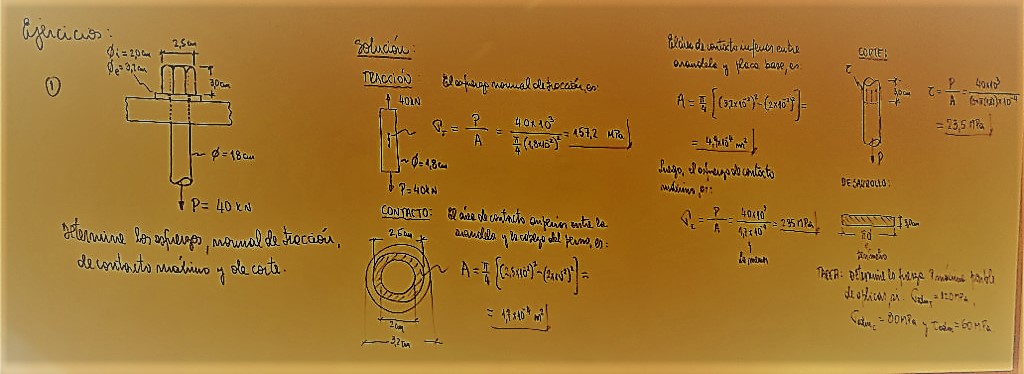 Ejercicios:
①
ϕi = 2,0 cm
ϕe = 3,2 cm
2,5 cm
3,0 cm
ϕ = 1,8 cm
P = 40 kN
Determine los esfuerzos, normal de tracción,
de contacto máximo y de corte.
Solución:
TRACCIÓN: El esfuerzo normal de tracción, es:
40 kN
σ = P/A = 40x10³ / π/4 (1,8x10⁻²)² = 157,2 MPa
ϕ = 1,8 cm
P = 40 kN
CONTACTO: El área de contacto superior entre la
arandela y la cabeza del perno, es:
2,5 cm
A = π/4 [(2,5x10⁻²)² - (2x10⁻²)²] =
= 1,7x10⁻⁴ m²
2 cm
3,2 cm
El área de contacto inferior entre
arandela y placa base, es:
A = π/4 [(3,2x10⁻²)² - (2x10⁻²)²] =
= 4,9x10⁻⁴ m²
Luego, el esfuerzo de contacto
máximo, es:
σc = P/A = 40x10³ / 1,7x10⁻⁴ = 235 MPa
La menor
CORTE:
τ
3,0 cm
P
τ = P/A = 40x10³
= 23,5 MPa
DESARROLLO:
3 cm
πd
perímetro
TAREA: Determine la fuerza P máxima posible
de aplicar, si: σadm = 120 MPa,
σadmc = 80 MPa y τadm = 60 MPa